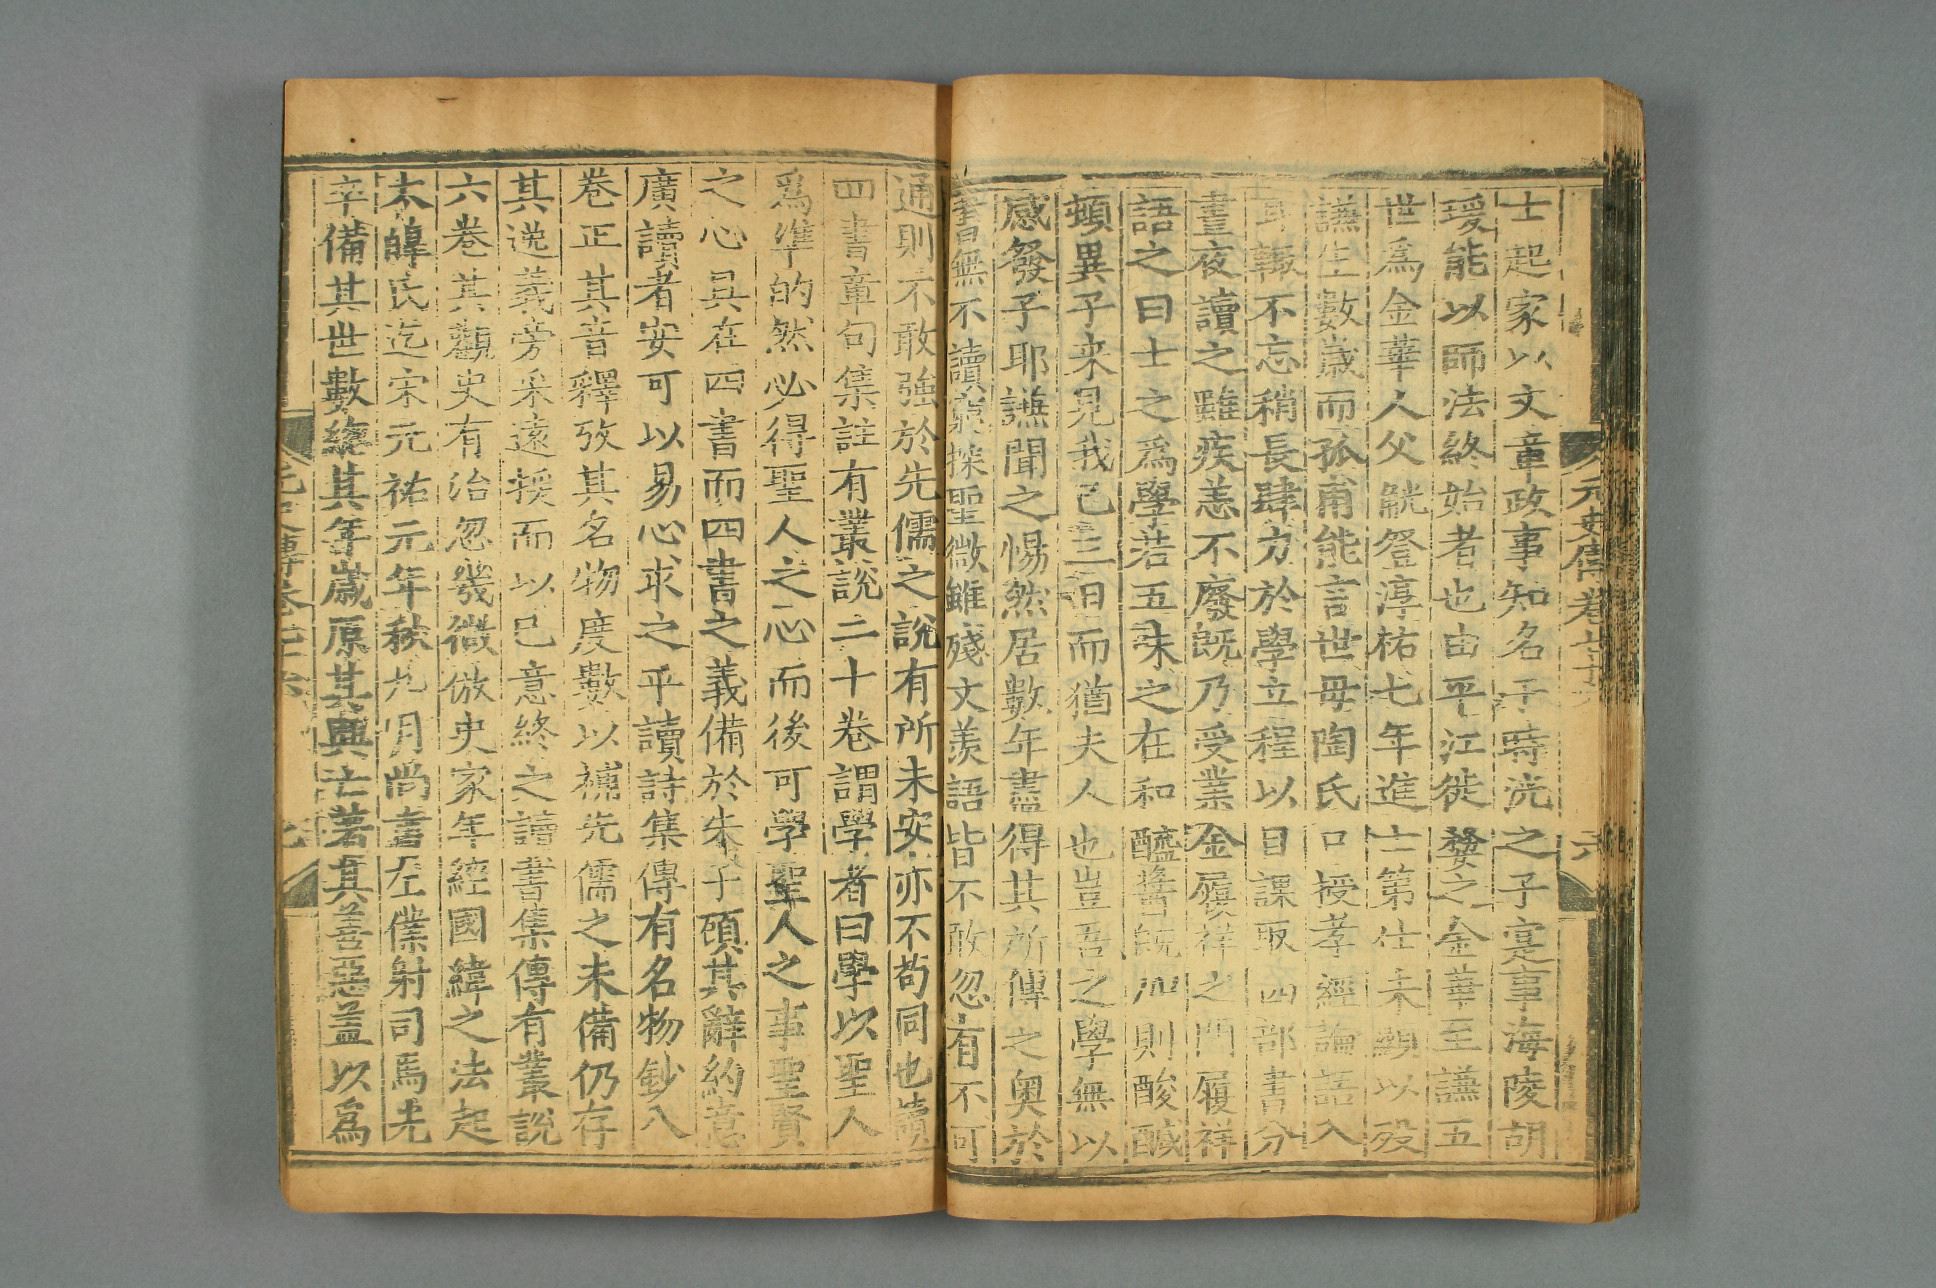 元史傳卷七十六
六
士起家以文章政事知名于時洸之子寔事海陵胡
瑗能以師法終始者也由平江徙婺之金華至謙五
世爲金華人父觥登淳祐七年進士第仕未顯以歿
謙生數歲而孤甫能言世母陶氏口授孝經論語入
耳輒不忘稍長肆力於學立程以自課取四部書分
晝夜讀之雖疾恙不廢旣乃受業金履祥之門履祥
語之曰士之爲學若五味之在和醯醬旣加則酸醎
頓異子来見我已三日而猶夫人也豈吾之學無以
感發子耶謙聞之惕然居數年盡得其所傳之奥於
書無不讀窮探聖微雖殘文羨語皆不敢忽有不可
通則不敢強於先儒之說有所未安亦不苟同也讀
四書章句集註有叢說二十卷謂學者曰學以聖人
爲準的然必得聖人之心而後可學聖人之事聖賢
之心具在四書而四書之義備於朱子顧其辭約意
廣讀者安可以易心求之乎讀詩集傳有名物鈔八
卷正其音釋攷其名物度數以補先儒之未備仍存
其逸義旁采遠援而以己意終之讀書集傳有叢說
六卷其觀史有治忽幾微倣史家年經國緯之法起
太皞氏迄宋元祐元年秋九月尚書左僕射司馬光
卒備其世數總其年歲原其興亡著其善惡蓋以爲
元史傳卷七十六